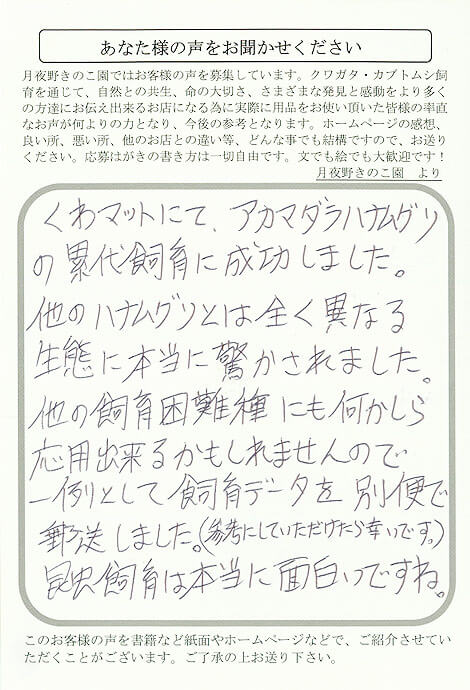 あなた様の声をお聞かせください
月夜野きのこ園ではお客様の声を募集しています。クワガタ・カブトムシ飼
育を通じて、自然との共生、命の大切さ、さまざまな発見と感動をより多く
の方達にお伝え出来るお店になる為に実際に用品をお使い頂いた皆様の率直
なお声が何よりの力となり、今後の参考となります。ホームページの感想、
良い所、悪い所、他のお店との違い等、どんな事でも結構ですので、お送り
ください。応募はがきの書き方は一切自由です。文でも絵でも大歓迎です！
月夜野きのこ園　より
くわマットにて、アカマダラハナムグリ
の累代飼育に成功しました。
他のハナムグリとは全く異なる
生態に本当に驚かされました。
他の飼育困難種にも何かしら
応用出来るかもしれませんので
一例として飼育データを別便で
郵送しました。(参考にしていただけたら幸いです。)
昆虫飼育は本当に面白いですね。
このお客様の声を書籍など紙面やホームページなどで、ご紹介させてい
ただくことがございます。ご了承の上お送り下さい。